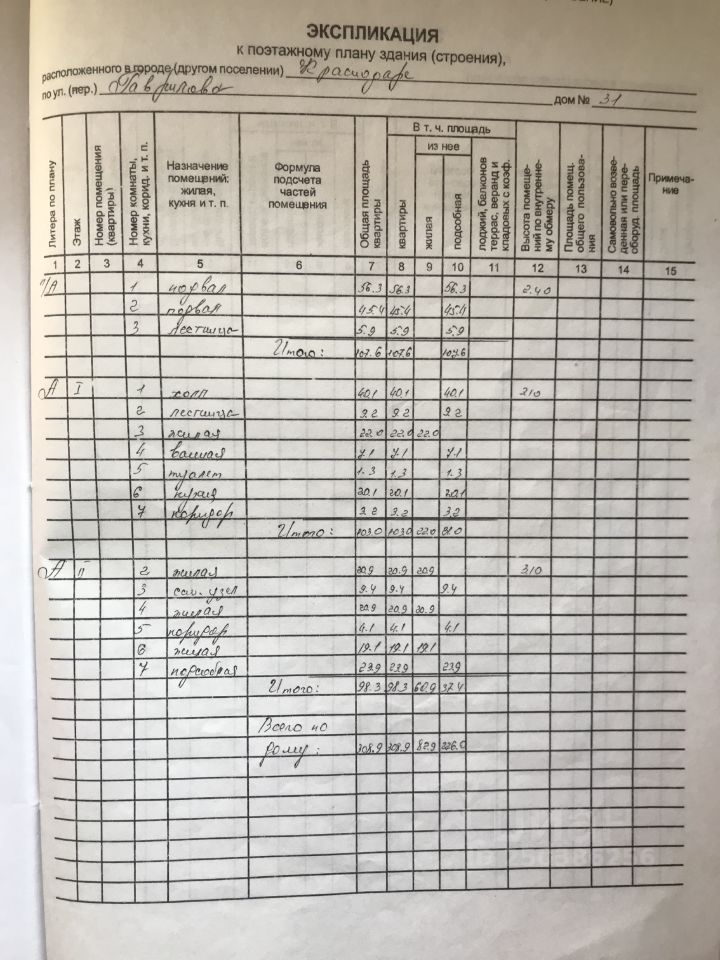 ЭКСПЛИКАЦИЯ
к поэтажному плану здания (строения),
расположенного в городе (другом поселении) Краснодаре
по ул. (пер.) Гаврилова дом № 31
Литера по плану
Этаж
Номер помещения (квартиры)
Номер комнаты, кухни, корид. и т. п.
Назначение помещений: жилая, кухня и т. п.
Формула подсчета частей помещения
Общая площадь квартиры
В т. ч. площадь
квартиры
из нее
жилая
подсобная
лоджий, балконов террас, веранд и кладовых с коэф.
Высота помещений по внутреннему обмеру
Площадь помещ. общего пользования
Самовольно возведенная или переоборуд. площадь
Примечание
1 2 3 4 5 6 7 8 9 10 11 12 13 14 15
п/А 1 подвал 56.3 56.3 56.3 2.40
2 подвал 45.4 45.4 45.4
3 лестница 5.9 5.9 5.9
Итого: 107.6 107.6 107.6
А I 1 холл 40.1 40.1 40.1 310
2 лестница 9.2 9.2 9.2
3 жилая 22.0 22.0 22.0
4 ванная 7.1 7.1 7.1
5 туалет 1.3 1.3 1.3
6 кухня 20.1 20.1 20.1
7 коридор 3.2 3.2 3.2
Итого: 103.0 103.0 22.0 81.0
А II 2 жилая 20.9 20.9 20.9 310
3 сан. узел 9.4 9.4 9.4
4 жилая 20.9 20.9 20.9
5 коридор 4.1 4.1 4.1
6 жилая 19.1 19.1 19.1
7 подсобная 23.9 23.9 23.9
Итого: 98.3 98.3 60.9 37.4
Всего по
дому: 308.9 308.9 82.9 226.0